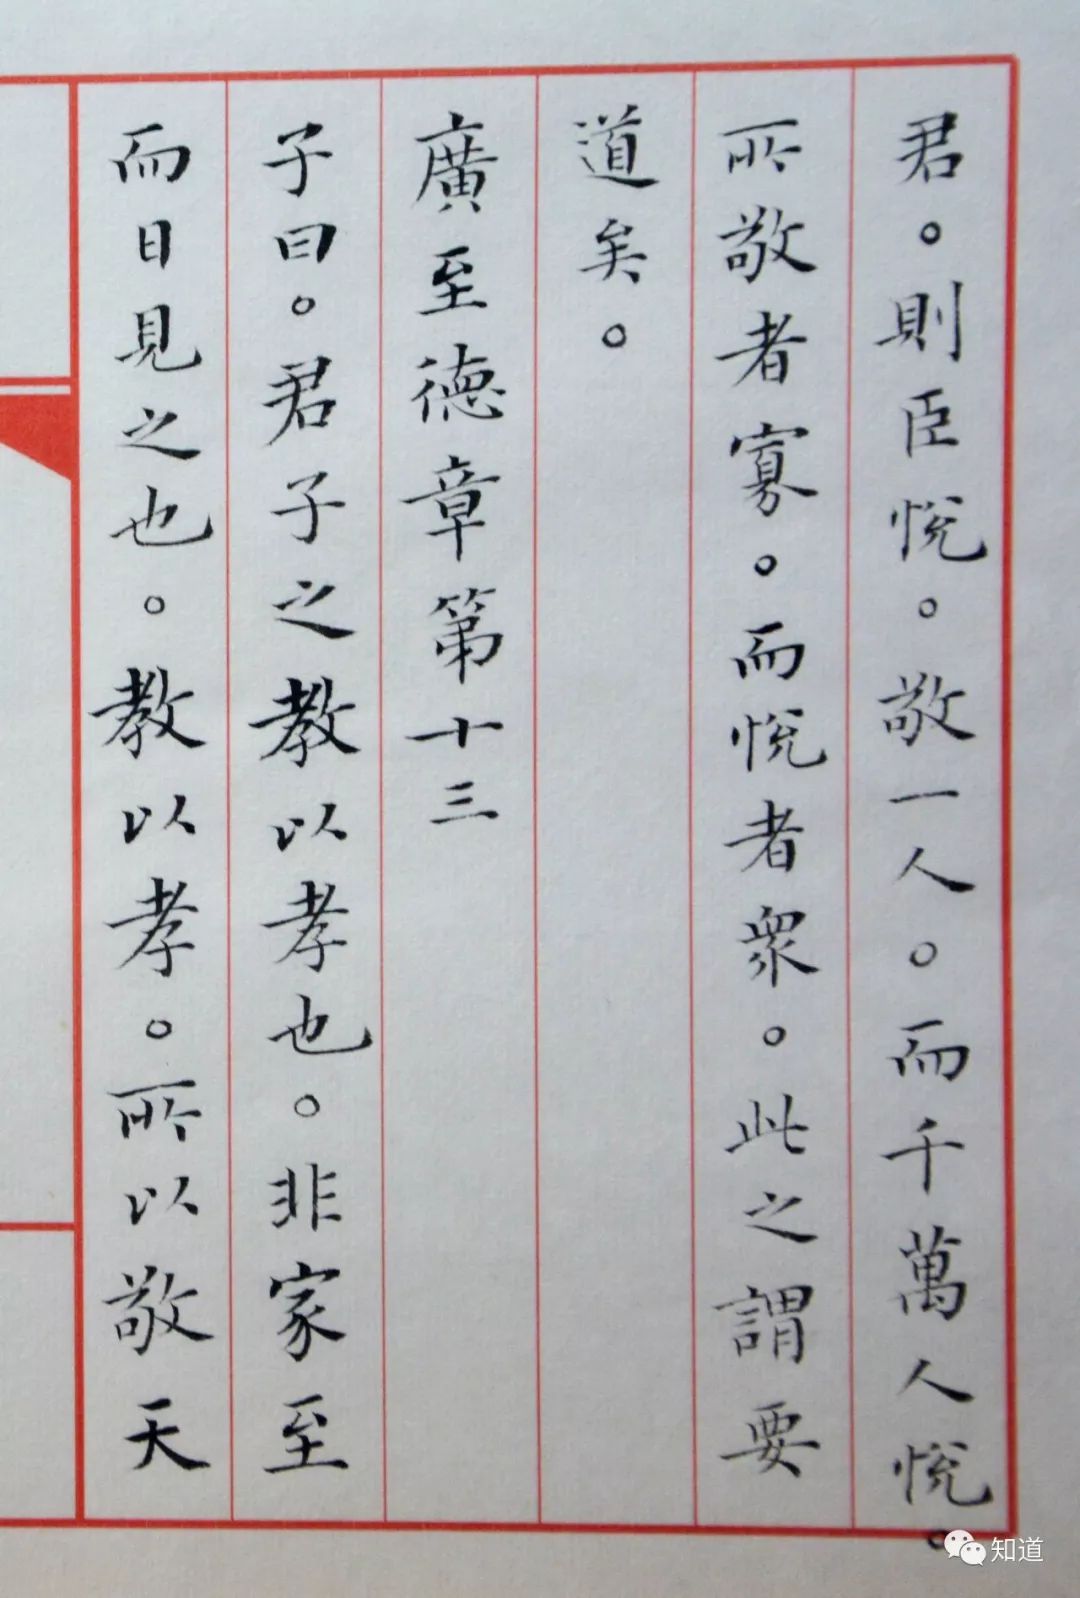 君。則臣悅。敬一人。而千萬人悅。
所敬者寡。而悅者衆。此之謂要
道矣。
廣至德章第十三
子曰。君子之教以孝也。非家至
而日見之也。教以孝。所以敬天
知道